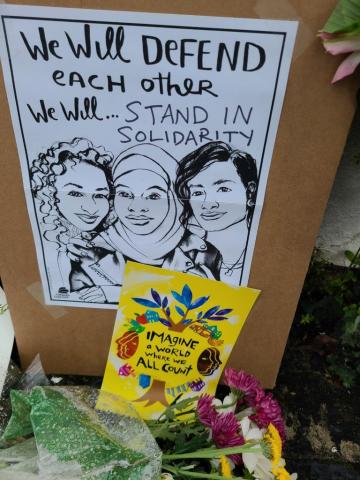 We Will DEFEND
each other
We Will... STAND IN
SOLIDARITY
IMAGINE
a WORLD
WHERE WE
ALL COUNT